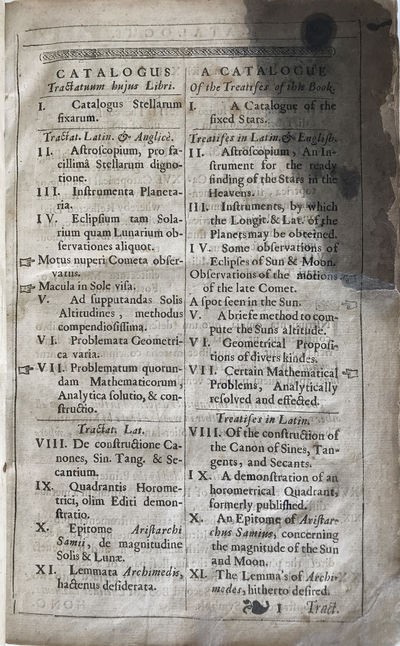 CATALOGUS
Tractatuum hujus Libri.
I. Catalogus Stellarum
fixarum.
Tractat. Latin. & Anglicè.
II. Astroscopium, pro fa-
cillimâ Stellarum digno-
tione.
III. Instrumenta Planeta-
ria.
IV. Eclipsium tam Sola-
rium quam Lunarium ob-
servationes aliquot.
☞ Motus nuperi Cometæ obser-
vatus.
☞ Macula in Sole visa.
V. Ad supputandas Solis
Altitudines, methodus
compendiosissima.
VI. Problemata Geometri-
ca varia.
☞ VII. Problematum quorun-
dam Mathematicorum,
Analytica solutio, & con-
structio.
Tractat. Lat.
VIII. De constructione Ca-
nones, Sin. Tang. & Se-
cantium.
IX. Quadrantis Horome-
trici, olim Editi demon-
stratio.
X. Epitome Aristarchi
Samii, de magnitudine
Solis & Lunæ.
XI. Lemmata Archimedis,
hactenus desiderata.
A CATALOGUE
Of the Treatises of this Book.
I. A Catalogue of the
fixed Stars.
Treatises in Latin & English.
II. Astroscopium, An In-
strument for the ready
finding of the Stars in the
Heavens.
III. Instruments, by which
the Longit. & Lat. of the
Planets may be obteined.
IV. Some observations of
Eclipses of Sun & Moon.
Observations of the motions
of the late Comet.
A spot seen in the Sun.
V. A briefe method to com-
pute the Suns altitude.
VI. Geometrical Proposi-
tions of divers kindes.
VII. Certain Mathematical
Problems, Analytically
resolved and effected.
Treatises in Latin.
VIII. Of the construction of
the Canon of Sines, Tan-
gents, and Secants.
IX. A demonstration of an
horometrical Quadrant,
formerly published.
X. An Epitome of Aristar-
chus Samius, concerning
the magnitude of the Sun
and Moon.
XI. The Lemma's of Archi-
medes, hitherto desired.
1 Tract.